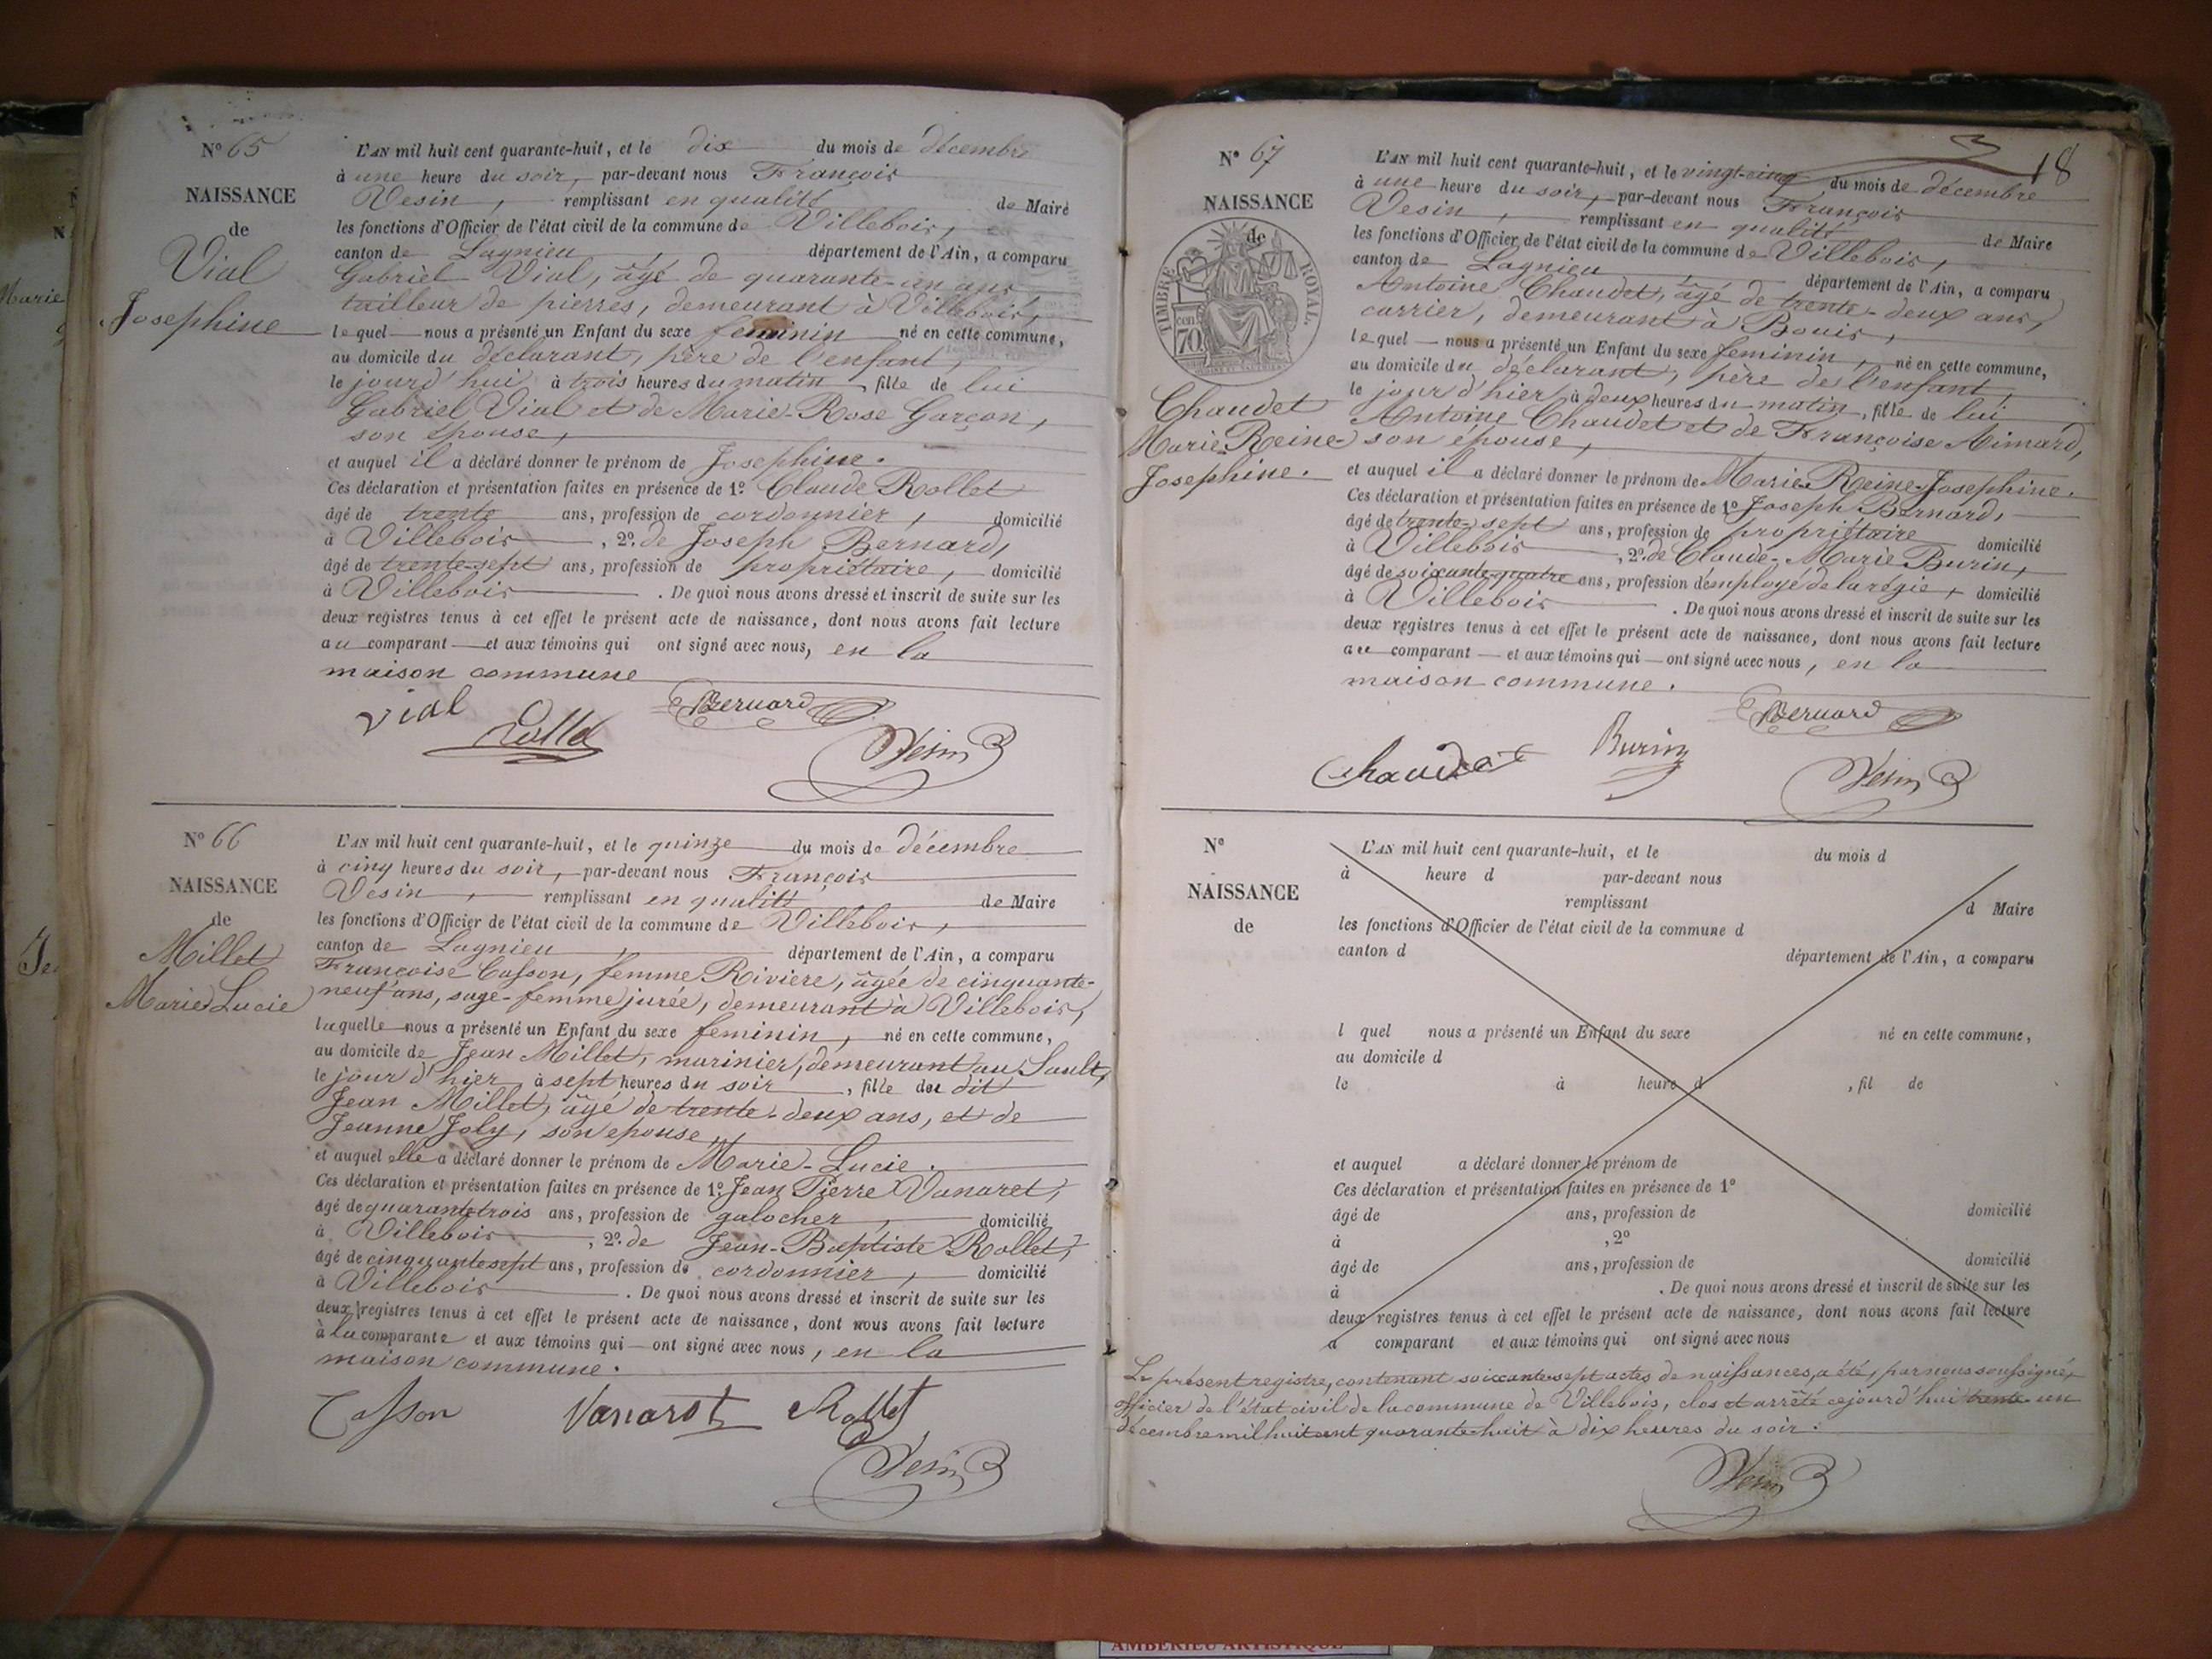 N° 65
NAISSANCE
de
Vial
Josephine
L'AN mil huit cent quarante-huit, et le dix du mois de décembre
à une heure du soir, par-devant nous François
Vesin, remplissant en qualité de Maire
les fonctions d'Officier de l'état civil de la commune de Villebois,
canton de Lagnieu, département de l'Ain, a comparu
Gabriel Vial, âgé de quarante-un ans
tailleur de pierres, demeurant à Villebois,
lequel nous a présenté un Enfant du sexe feminin né en cette commune,
au domicile du déclarant, père de l'enfant,
le jourd'hui à trois heures du matin, fille de lui
Gabriel Vial et de Marie-Rose Garçon,
son épouse,
et auquel il a déclaré donner le prénom de Josephine.
Ces déclaration et présentation faites en présence de 1° Claude Rollet
âgé de trente ans, profession de cordonnier, domicilié
à Villebois, 2° de Joseph Bernard,
âgé de trente-sept ans, profession de propriétaire, domicilié
à Villebois. De quoi nous avons dressé et inscrit de suite sur les
deux registres tenus à cet effet le présent acte de naissance, dont nous avons fait lecture
au comparant et aux témoins qui ont signé avec nous, en la
maison commune
Vial Rollet Bernard
Vesin
N° 66
NAISSANCE
de
Millet
Marie Lucie
L'AN mil huit cent quarante-huit, et le quinze du mois de décembre
à cinq heures du soir, par-devant nous François
Vesin, remplissant en qualité de Maire
les fonctions d'Officier de l'état civil de la commune de Villebois,
canton de Lagnieu, département de l'Ain, a comparu
Françoise Casson, femme Riviere, âgée de cinquante-
neuf ans, sage-femme jurée, demeurant à Villebois,
laquelle nous a présenté un Enfant du sexe feminin, né en cette commune,
au domicile de Jean Millet, marinier, demeurant au Sault,
le jour d'hier à sept heures du soir, fille du dit
Jean Millet, âgé de trente-deux ans, et de
Jeanne Joly, son epouse,
et auquel elle a déclaré donner le prénom de Marie-Lucie.
Ces déclaration et présentation faites en présence de 1° Jean Pierre Vanaret,
âgé de quarante trois ans, profession de galocher, domicilié
à Villebois, 2° de Jean-Baptiste Rollet,
âgé de cinquante sept ans, profession de cordonnier, domicilié
à Villebois. De quoi nous avons dressé et inscrit de suite sur les
deux registres tenus à cet effet le présent acte de naissance, dont nous avons fait lecture
à la comparante et aux témoins qui ont signé avec nous, en la
maison commune.
Casson Vanaret Rollet
Vesin
18
N° 67
NAISSANCE
de
TIMBRE ROYAL
70
Chaudet
Marie-Reine-
Josephine.
L'AN mil huit cent quarante-huit, et le vingt-cinq du mois de décembre
à une heure du soir, par-devant nous François
Vesin, remplissant en qualité de Maire
les fonctions d'Officier de l'état civil de la commune de Villebois,
canton de Lagnieu, département de l'Ain, a comparu
Antoine Chaudet, âgé de trente-deux ans,
carrier, demeurant à Bouis,
lequel nous a présenté un Enfant du sexe feminin, né en cette commune,
au domicile du déclarant, père de l'enfant,
le jour d'hier à deux heures du matin, fille de lui
Antoine Chaudet et de Françoise Aimard,
son épouse,
et auquel il a déclaré donner le prénom de Marie-Reine-Josephine.
Ces déclaration et présentation faites en présence de 1° Joseph Bernard,
âgé de trente-sept ans, profession de propriétaire domicilié
à Villebois, 2° de Claude-Marie Burin,
âgé de soixante-quatre ans, profession d'employé de la régie, domicilié
à Villebois. De quoi nous avons dressé et inscrit de suite sur les
deux registres tenus à cet effet le présent acte de naissance, dont nous avons fait lecture
au comparant et aux témoins qui ont signé avec nous, en la
maison commune.
Chaudet Burin Bernard
Vesin
N°
NAISSANCE
de
L'AN mil huit cent quarante-huit, et le du mois d
à heure d par-devant nous
remplissant d Maire
les fonctions d'Officier de l'état civil de la commune d
canton d département de l'Ain, a comparu
l quel nous a présenté un Enfant du sexe né en cette commune,
au domicile d
le à heure d , fil de
et auquel a déclaré donner le prénom de
Ces déclaration et présentation faites en présence de 1°
âgé de ans, profession de domicilié
à , 2°
âgé de ans, profession de domicilié
à . De quoi nous avons dressé et inscrit de suite sur les
deux registres tenus à cet effet le présent acte de naissance, dont nous avons fait lecture
a comparant et aux témoins qui ont signé avec nous
Le présent registre, contenant soixante sept actes de naissances, a été, par nous soussigné,
officier de l'état civil de la commune de Villebois, clos et arrêté ce jourd'hui trente-un
décembre mil huit cent quarante-huit à dix heures du soir.
Vesin
AMBERIEU ARTISTIQUE